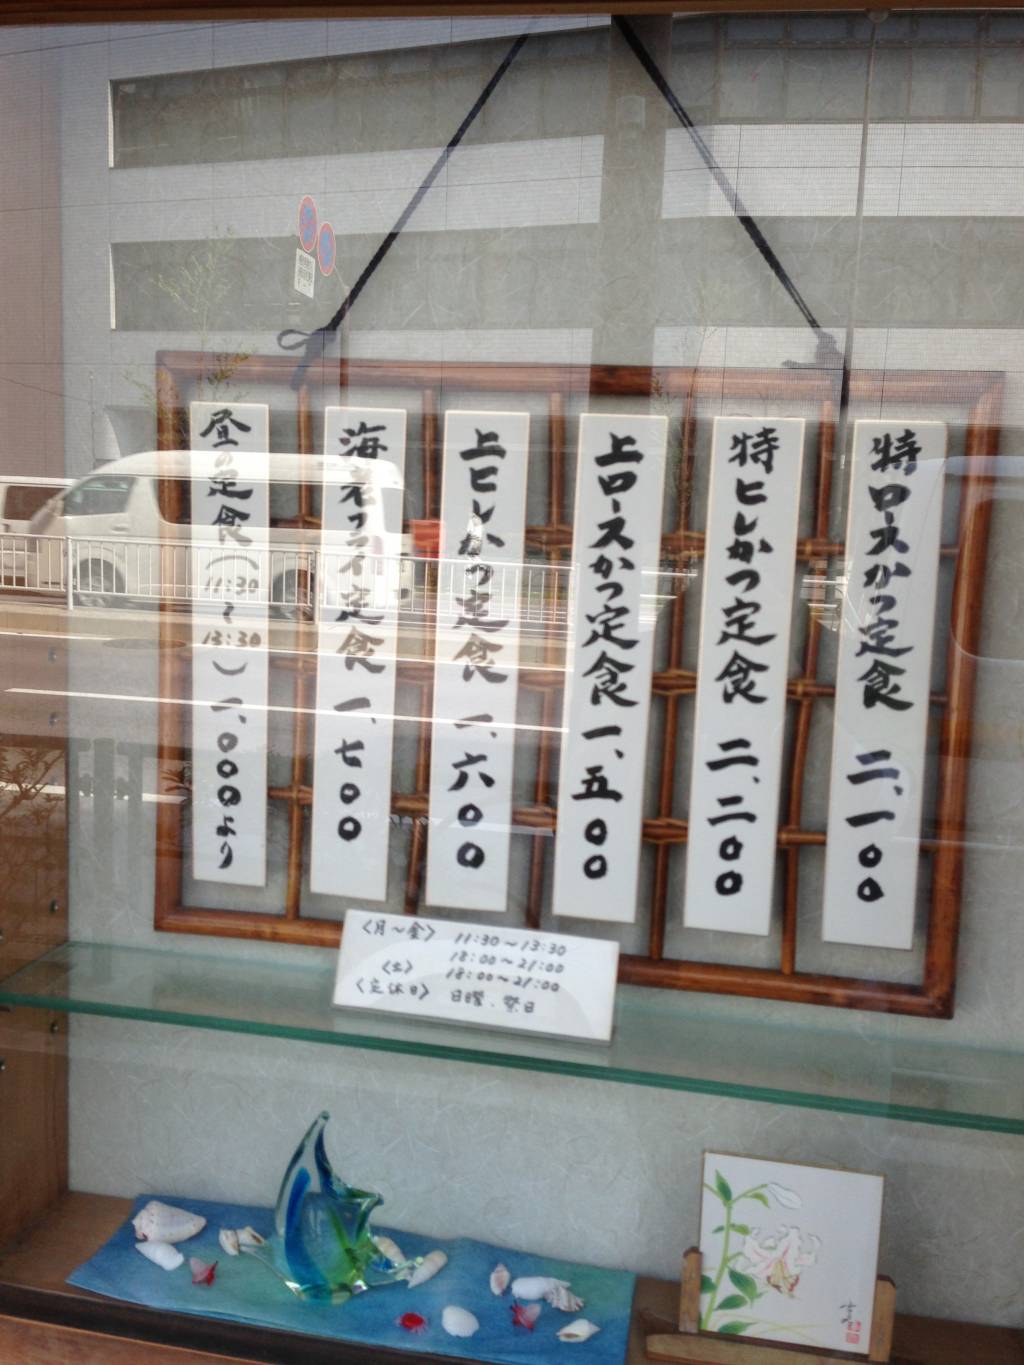 特ロースかつ定食 二、一〇〇
特ヒレかつ定食 二、二〇〇
上ロースかつ定食 一、五〇〇
上ヒレかつ定食 一、六〇〇
海老フライ定食 一、七〇〇
昼の定食(11:30〜13:30)一、〇〇〇より
〈月〜金〉 11:30〜13:30
18:00〜21:00
〈土〉 18:00〜21:00
〈定休日〉 日曜、祭日